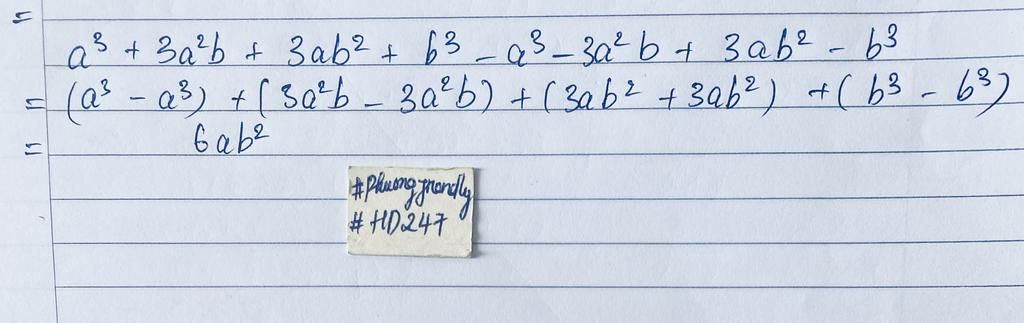 =
a³ + 3a²b + 3ab² + b³ - a³ - 3a²b + 3ab² - b³
= (a³ - a³) + (3a²b - 3a²b) + (3ab² + 3ab²) + (b³ - b³)
= 6ab²
#HD247